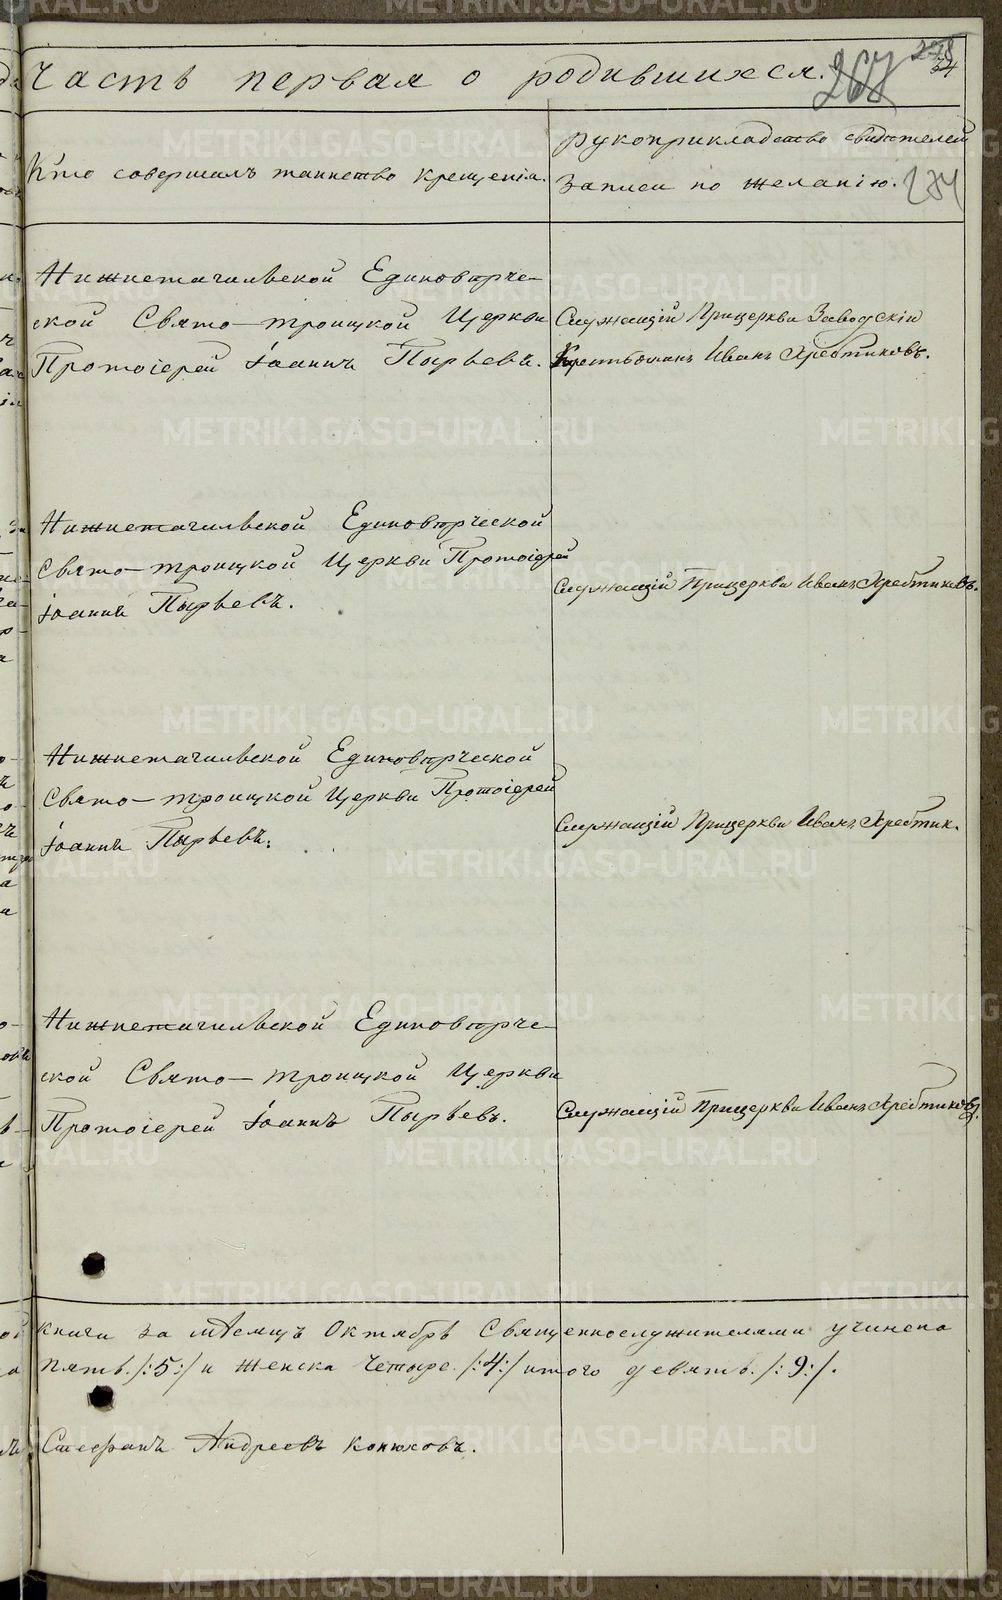 Часть первая о родившихся.
267
278
34
Кто совершалъ таинство крещенія.
Рукоприкладство свидѣтелей
записи по желанію.
Нижнетагильской Единовѣрче-
ской Свято-Троицкой Церкви
Протоіерей Іоаннъ Пырьевъ.
Служащій При церкви Заводскіи
Крестьянинъ Иванъ Хребтиковъ.
Нижнетагильской Единовѣрческой
Свято-Троицкой Церкви Протоіерей
Іоаннъ Пырьевъ.
Служащій При церкви Иванъ Хребтиковъ.
Нижнетагильской Единовѣрческой
Свято-Троицкой Церкви Протоіерей
Іоаннъ Пырьевъ.
Служащій При церкви Иванъ Хребтик.
Нижнетагильской Единовѣрче-
ской Свято-Троицкой Церкви
Протоіерей Іоаннъ Пырьевъ.
Служащій При церкви Иванъ Хребтиковъ.
книги за мѣсяцъ Октябрь Священнослужителями учинена
пять /:5:/ и женска четыре /:4:/ итого девять /:9:/.
Стефанъ Андреевъ Конюховъ.
METRIKI.GASO-URAL.RU